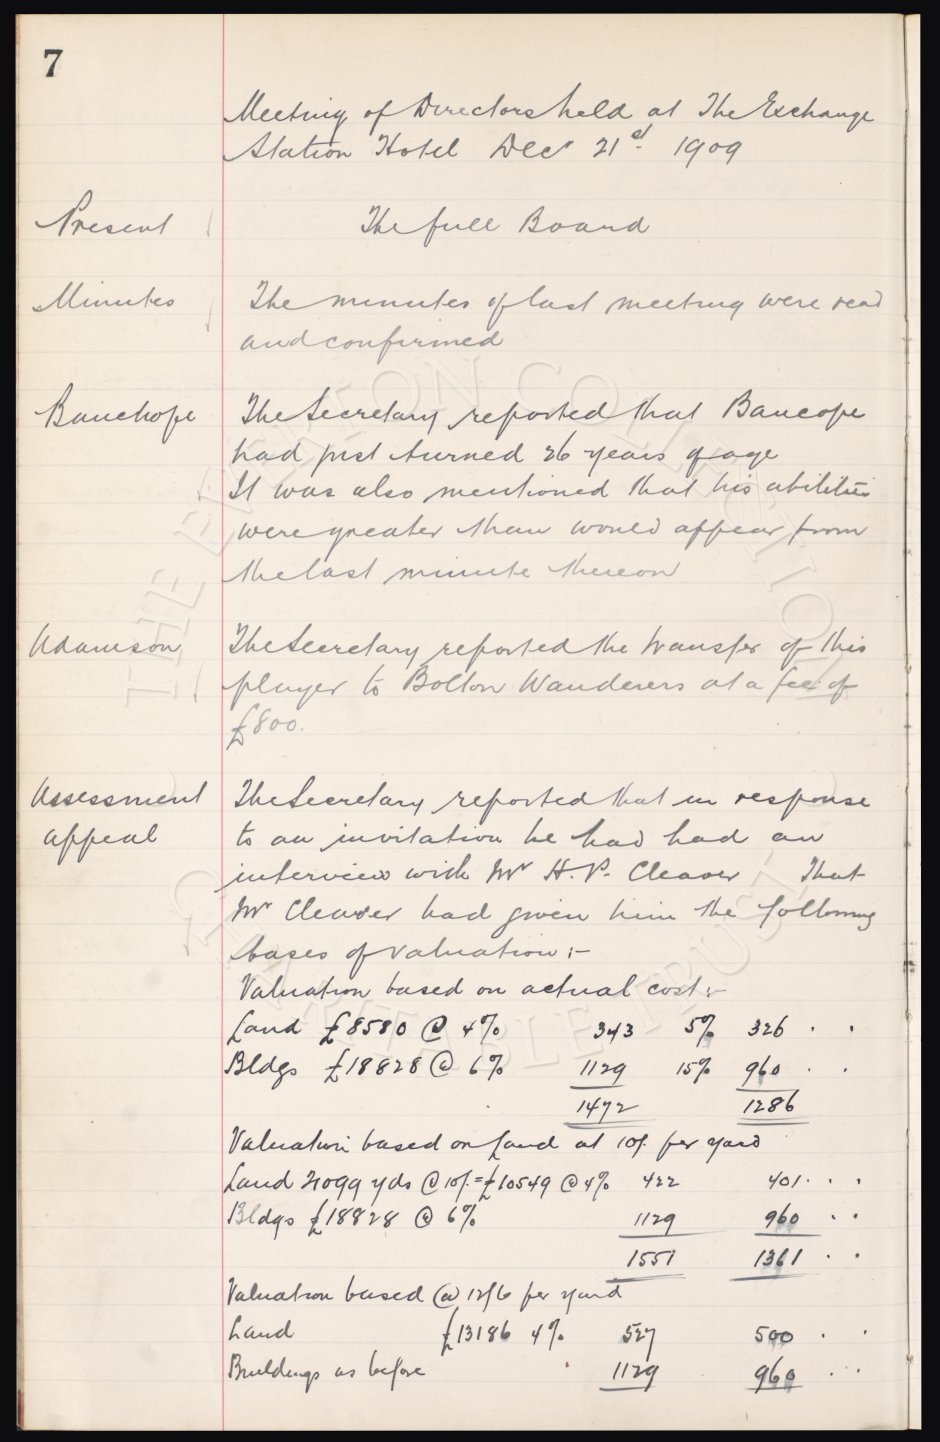 7
Meeting of Directors held at The Exchange
Station Hotel Decr 21st 1909
Present The full Board
Minutes The minutes of last meeting were read
and confirmed
Bauchope The Secretary reported that Baucope
had just turned 26 years of age
It was also mentioned that his abilities
were greater than would appear from
the last minute thereon
Adamson The Secretary reported the transfer of this
player to Bolton Wanderers at a fee of
£800.
Assessment The Secretary reported that in response
appeal to an invitation he had had an
interview with Mr H.P. Cleaver That
Mr Cleaver had given him the following
bases of valuation :-
Valuation based on actual cost :-
Land £8580 @ 4% 343 5% 326 . .
Bldgs £18828 @ 6% 1129 15% 960 . .
1472 1286
Valuation based on Land at 10/. per yard
Land 21099 yds @ 10/. = £10549 @ 4% 422 401 . . .
Bldgs £18828 @ 6% 1129 960 . .
1551 1361 . .
Valuation based @ 12/6 per yard
Land £13186 4% 527 500 . .
Buildings as before 1129 960 . .
THE EVERTON COLLECTION
CHARITABLE TRUST